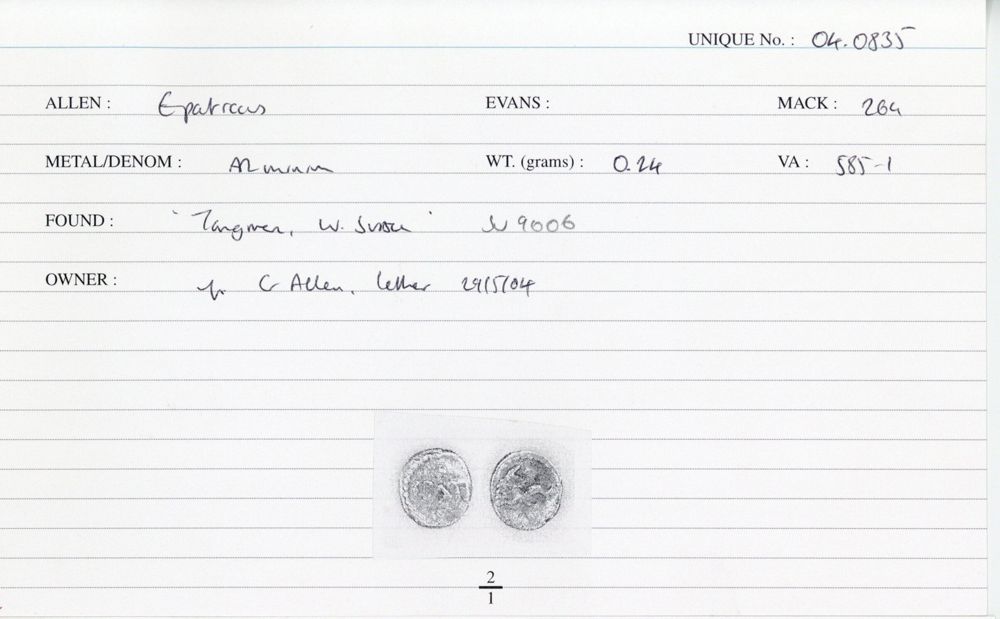 UNIQUE No. : 04.0835
ALLEN : Epaticcus EVANS : MACK : 264
METAL/DENOM : AR minim WT. (grams) : 0.24 VA : 585-1
FOUND : 'Tangmere, W. Sussex' SU 9006
OWNER : C Allen, letter 29/5/04
2
1